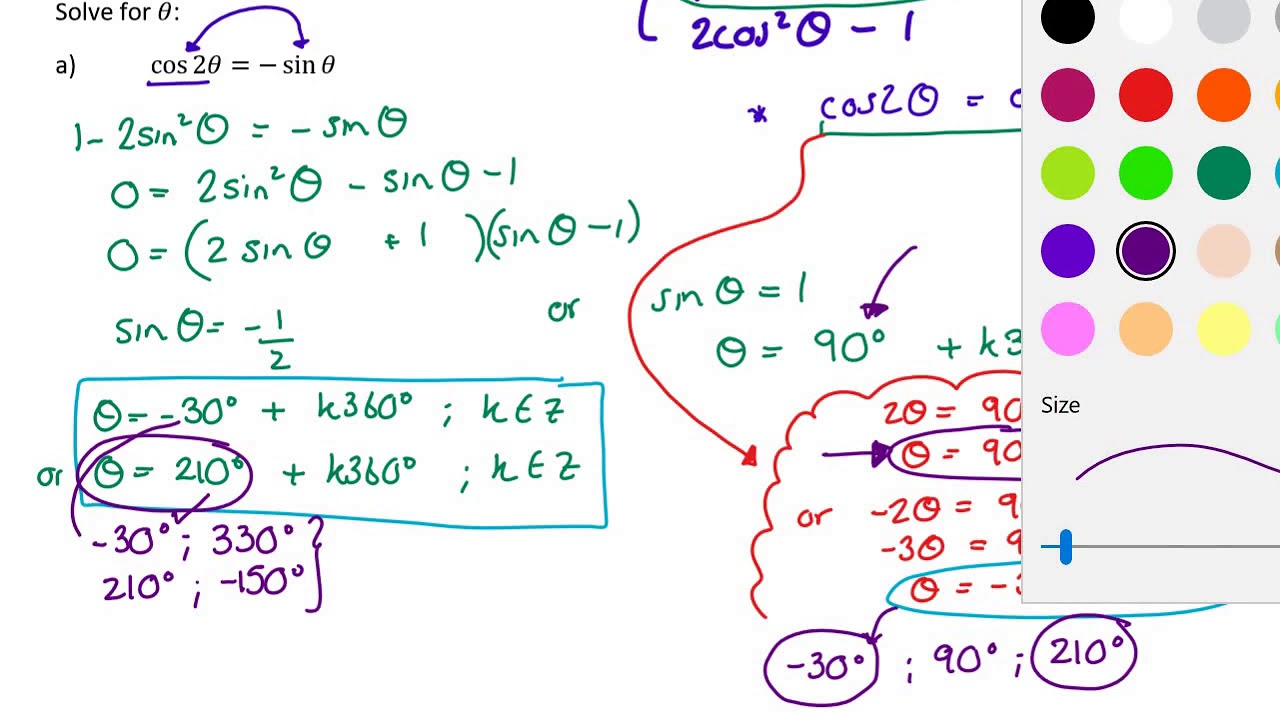 Solve for θ:
a) cos 2θ = − sin θ
1 - 2sin²θ = - sinθ
0 = 2sin²θ - sinθ - 1
0 = (2 sinθ + 1 )(sinθ - 1)
sinθ = -1/2
or
sinθ = 1
θ = 90° + k3
θ = -30° + k360° ; k ∈ Z
or θ = 210° + k360° ; k ∈ Z
-30° ; 330° }
210° ; -150°
2cos²θ - 1
* cos2θ =
2θ = 90
θ = 90
or -2θ = 9
-3θ = 9
θ = -3
-30° ; 90° ; 210°
Size